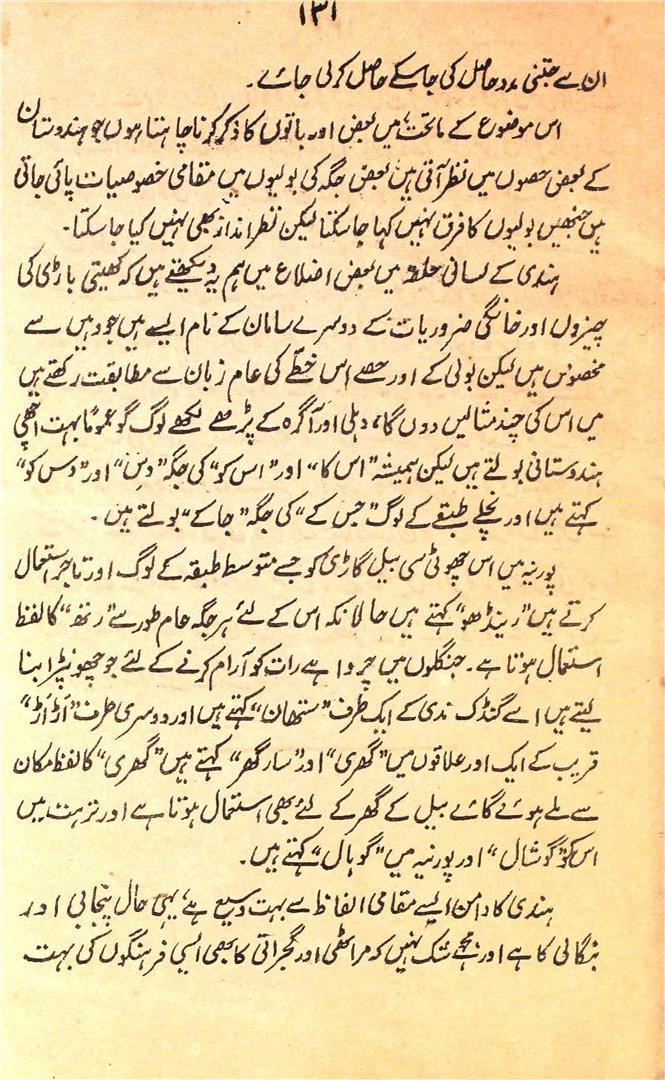 ۱۳۱
ان سے جتنی مدد حاصل کی جاسکے حاصل کرلی جائے۔
اس موضوع کے ماتحت میں بعض اور باتوں کا ذکر کرنا چاہتا ہوں جو ہندوستان
کے بعض حصوں میں نظر آتی ہیں بعض جگہ کی بولیوں میں مقامی خصوصیات پائی جاتی
ہیں جنھیں بولیوں کا فرق نہیں کہا جاسکتا لیکن نظر انداز بھی نہیں کیا جاسکتا۔
ہندی کے لسانی حلقہ میں بعض اضلاع میں ہم یہ دیکھتے ہیں کہ کھیتی باڑی کی
چیزوں اور خانگی ضروریات کے دوسرے سامان کے نام ایسے ہیں جو وہیں سے
مخصوص ہیں لیکن بولی کے اور حصے اس خطے کی عام زبان سے مطابقت رکھتے ہیں
میں اس کی چند مثالیں دوں گا، دہلی اور آگرہ کے پڑھے لکھے لوگ گو عموماً بہت اچھی
ہندوستانی بولتے ہیں لیکن ہمیشہ "اس کا" اور "اس کو" کی جگہ "وس" اور "وس کو"
کہتے ہیں اور نچلے طبقے کے لوگ "جس کے" کی جگہ "جاکے" بولتے ہیں۔
پورنیہ میں اس چھوٹی سی بیل گاڑی کو جسے متوسط طبقہ کے لوگ اور تاجر استعمال
کرتے ہیں "رینڈھو" کہتے ہیں حالانکہ اس کے لئے ہر جگہ عام طور سے "رتھ" کا لفظ
استعمال ہوتا ہے۔ جنگلوں میں چرواہے رات کو آرام کرنے کے لئے جو جھونپڑا بنا
لیتے ہیں اسے گنڈک ندی کے ایک طرف "ستھان" کہتے ہیں اور دوسری طرف "اَڑاَڑ"
قریب کے ایک اور علاقوں میں "گھری" اور "سارگھر" کہتے ہیں "گھری" کا لفظ مکان
سے ملے ہوئے گائے بیل کے گھر کے لئے بھی استعمال ہوتا ہے اور ترہت میں
اس کو "گوشال" اور پورنیہ میں "گوہال" کہتے ہیں۔
ہندی کا دامن ایسے مقامی الفاظ سے بہت وسیع ہے، یہی حال پنجابی اور
بنگالی کا ہے اور مجھے شک نہیں کہ مراٹھی اور گجراتی کا بھی ایسی فرہنگوں کی بہت